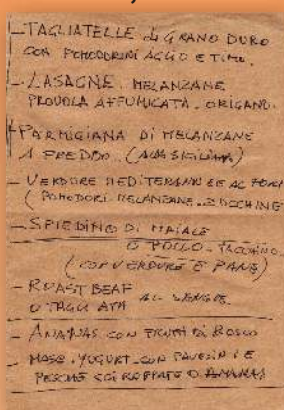 - TAGLIATELLE di GRANO DURO
CON POMODORINI AGLIO E TIMO.
- LASAGNE. MELANZANE
PROVOLA AFFUMICATA. ORIGANO.
- PARMIGIANA DI MELANZANE
A FREDDO. (ALLA SICILIANA)
- VERDURE MEDITERRANEE AL FORNO
(POMODORI MELANZANE - ZUCCHINE
- SPIEDINO DI MAIALE
O POLLO - TACCHINO
(CON VERDURE E PANE)
- ROAST BEAF
O TAGLIATA AL SANGUE.
- ANANAS CON FRUTTI DI BOSCO
- MASC. YOGURT. CON PAVESINI E
PESCHE SCIROPPATE O ANANAS